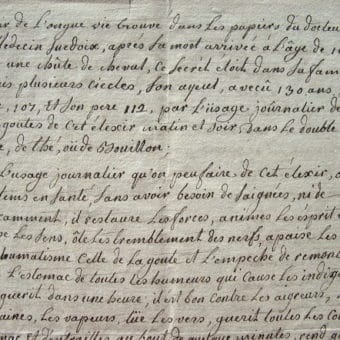 de Longue vie trouvé dans les papiers du docteur
Médecin Suedois, après Sa mort arrivée à L'âge de 10
une chûte de cheval, ce Secret étoit dans Sa fam
is plusieurs Siecles, Son ayeul, a vecû 130 ans
107, et Son pere 112, par L'usage journalier de
goutes de cet élexir matin et Soir, dans le double
de, thé, où de Bouillon:
L'usage journalier qu'on peu faire de Cet élexir, o
tems en Santé, Sans avoir besoin de Saignées, ni de
camment, il restaure Les forces, animes Les esprits
e Les Sens, ôte les tremblement des nerfs, apaise Les
humatisme Celle de La goute et L'empeche de remont
L'estomac de toutes Les humeurs qui Cause Les indig
guerit dans une heure, il est bon Contre Les aigeurs,
aines, Les vapeurs, tüe Les vers, guerit toutes Les Co
au bout de quelque minutes, rend